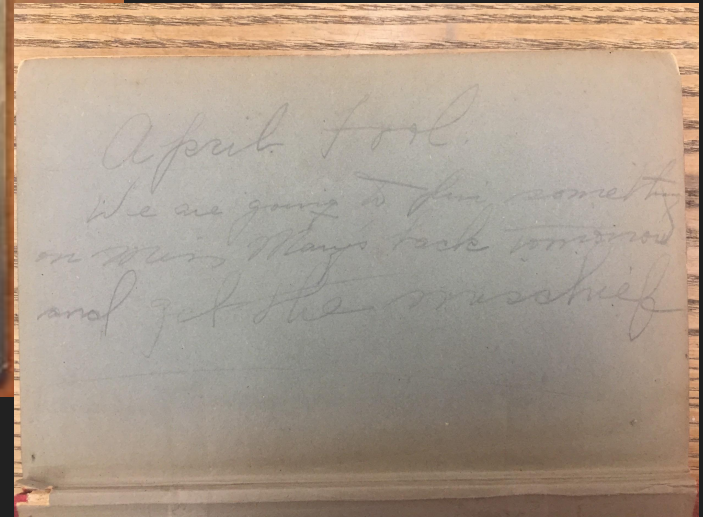 April Fool.
We are going to pin something
on Miss Mary's back tomorrow
and get the mischief